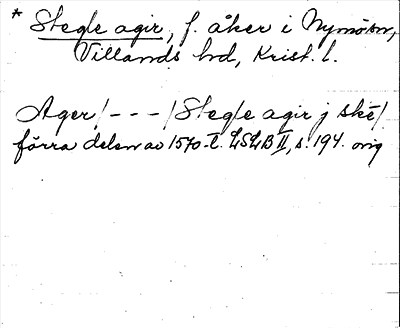 * Stegle agir, f. åker i Nymö sn,
Villands hd, Krist. l.
Ager /---/ Stegle agir j skē/
förra delen av 1570-t. LSLB II, s. 194. orig